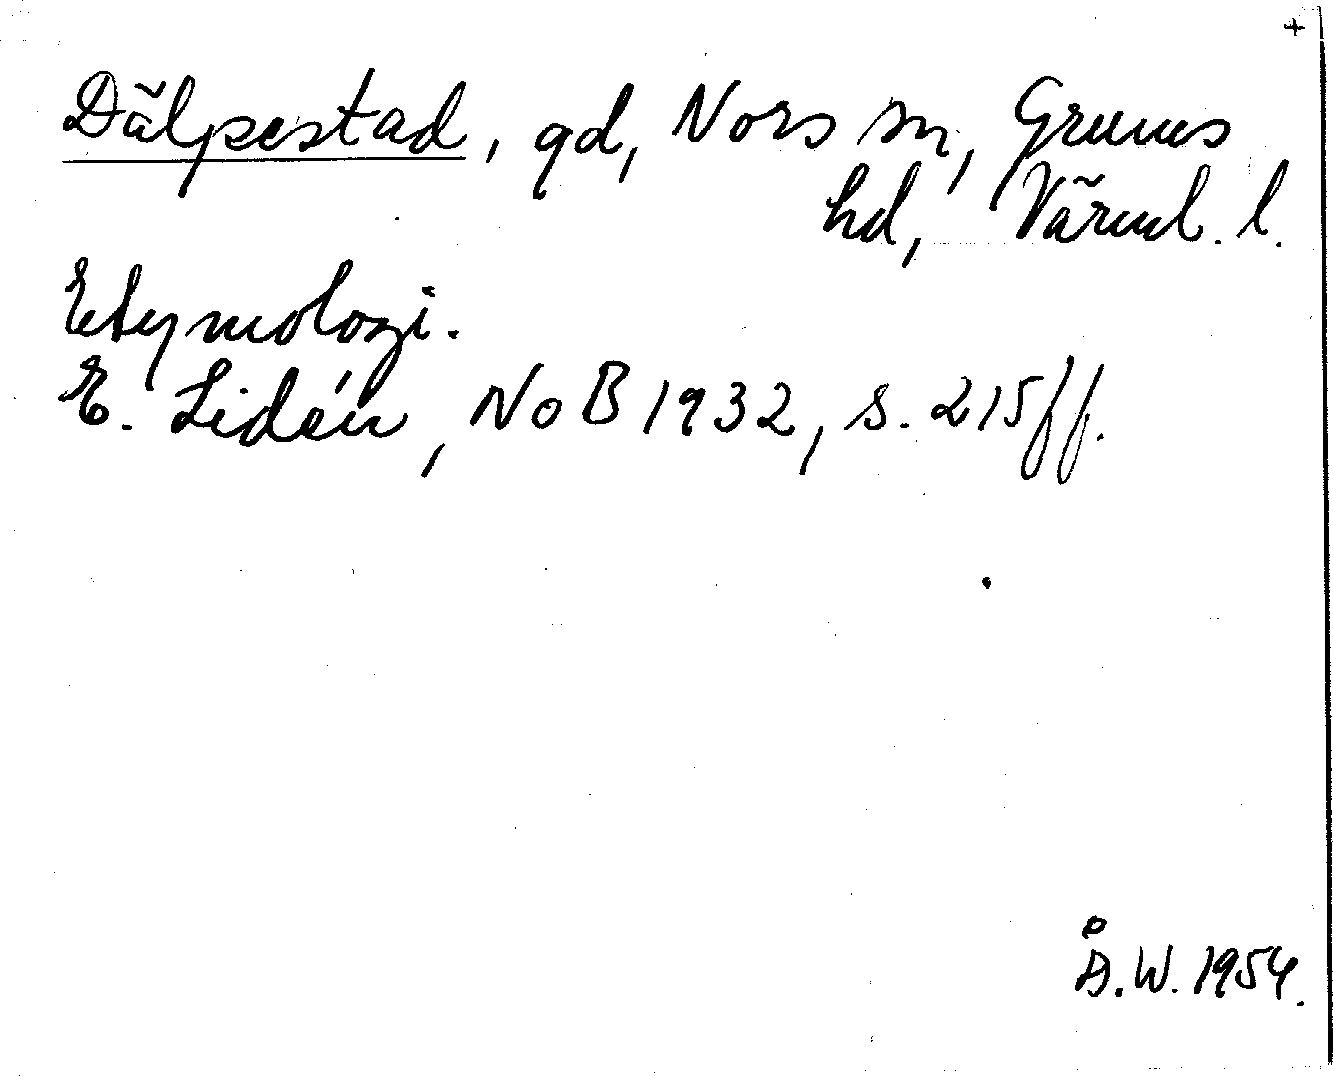 +
Dälpestad, gd, Nors sn, Grums
hd, Värml. l.
Etymologi.
E. Lidén, NoB 1932, s. 215ff.
Å.W. 1954.